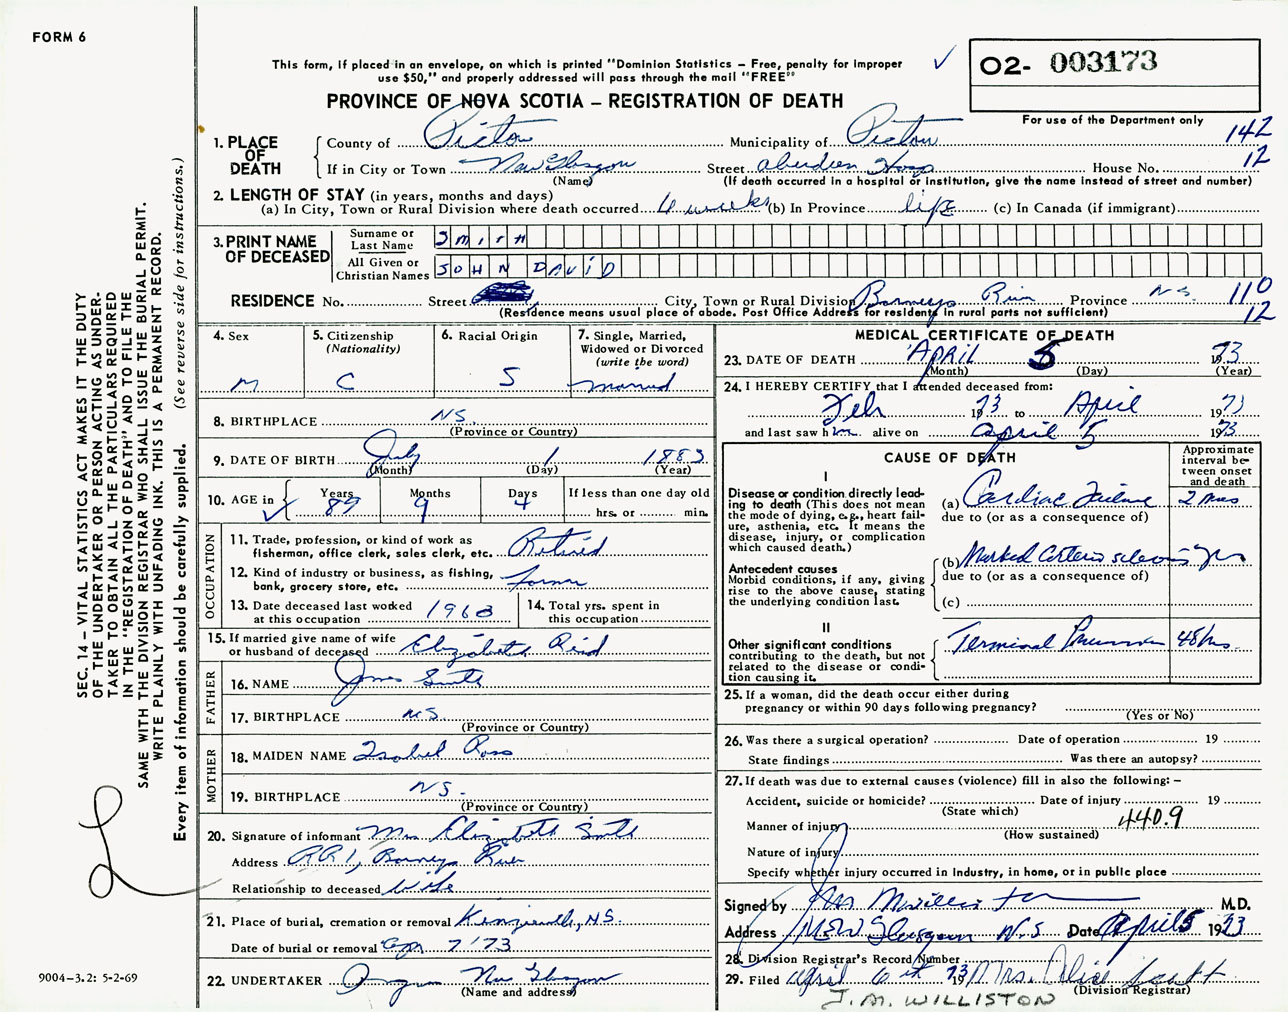 FORM 6
This form, if placed in an envelope, on which is printed "Dominion Statistics – Free, penalty for improper
use $50," and properly addressed will pass through the mail "FREE"
PROVINCE OF NOVA SCOTIA – REGISTRATION OF DEATH
O2- 003173
For use of the Department only
142
12
1. PLACE OF DEATH
County of Pictou Municipality of Pictou
If in City or Town New Glasgow Street Aberdeen Hosp House No.
(Name) (If death occurred in a hospital or institution, give the name instead of street and number)
2. LENGTH OF STAY (in years, months and days)
(a) In City, Town or Rural Division where death occurred 4 weeks (b) In Province life (c) In Canada (if immigrant)
3. PRINT NAME OF DECEASED
Surname or Last Name SMITH
All Given or Christian Names JOHN DAVID
RESIDENCE No. Street City, Town or Rural Division Barneys River Province N.S. 110
(Residence means usual place of abode. Post Office Address for residents in rural parts not sufficient) 12
4. Sex
M
5. Citizenship
(Nationality)
C
6. Racial Origin
S
7. Single, Married,
Widowed or Divorced
(write the word)
Married
8. BIRTHPLACE NS
(Province or Country)
9. DATE OF BIRTH July 1 1883
(Month) (Day) (Year)
10. AGE in Years 89 Months 9 Days 4 If less than one day old
hrs. or min.
OCCUPATION
11. Trade, profession, or kind of work as
fisherman, office clerk, sales clerk, etc. Retired
12. Kind of industry or business, as fishing,
bank, grocery store, etc. Farmer
13. Date deceased last worked
at this occupation 1968
14. Total yrs. spent in
this occupation
15. If married give name of wife
or husband of deceased Elizabeth Reid
FATHER
16. NAME James Smith
17. BIRTHPLACE N.S.
(Province or Country)
MOTHER
18. MAIDEN NAME Isabel Ross
19. BIRTHPLACE N.S.
(Province or Country)
20. Signature of informant Mrs Elizabeth Smith
Address RR1, Barneys River
Relationship to deceased Wife
21. Place of burial, cremation or removal Kenzieville, N.S.
Date of burial or removal Apr 7/73
22. UNDERTAKER New Glasgow
(Name and address)
MEDICAL CERTIFICATE OF DEATH
23. DATE OF DEATH APRIL 5 1973
(Month) (Day) (Year)
24. I HEREBY CERTIFY that I attended deceased from:
Feb 1973 to April 1973
and last saw him alive on April 5 1973
CAUSE OF DEATH
Approximate
interval be-
tween onset
and death
I
Disease or condition directly lead-
ing to death (This does not mean
the mode of dying, e.g., heart fail-
ure, asthenia, etc. It means the
disease, injury, or complication
which caused death.)
(a) Cardiac Failure 2 mos
due to (or as a consequence of)
Antecedent causes
Morbid conditions, if any, giving
rise to the above cause, stating
the underlying condition last.
(b) Marked Arteriosclerosis yrs
due to (or as a consequence of)
(c)
II
Other significant conditions
contributing to the death, but not
related to the disease or condi-
tion causing it.
Terminal Pneumonia 48 hrs.
25. If a woman, did the death occur either during
pregnancy or within 90 days following pregnancy?
(Yes or No)
26. Was there a surgical operation? Date of operation 19
State findings Was there an autopsy?
27. If death was due to external causes (violence) fill in also the following: –
Accident, suicide or homicide? Date of injury 19
(State which)
Manner of injury 440.9
(How sustained)
Nature of injury
Specify whether injury occurred in industry, in home, or in public place
Signed by J M Williston M.D.
Address New Glasgow N.S Date April 5 1973
28. Division Registrar's Record Number
29. Filed April 6th 1973 Mrs. Alice Scott
(Division Registrar)
J.M. WILLISTON
SEC. 14 – VITAL STATISTICS ACT MAKES IT THE DUTY
OF THE UNDERTAKER OR PERSON ACTING AS UNDER-
TAKER TO OBTAIN ALL THE PARTICULARS REQUIRED
IN THE "REGISTRATION OF DEATH" AND TO FILE THE
SAME WITH THE DIVISION REGISTRAR WHO SHALL ISSUE THE BURIAL PERMIT.
WRITE PLAINLY WITH UNFADING INK. THIS IS A PERMANENT RECORD.
Every item of information should be carefully supplied. (See reverse side for instructions.)
9004-3.2: 5-2-69